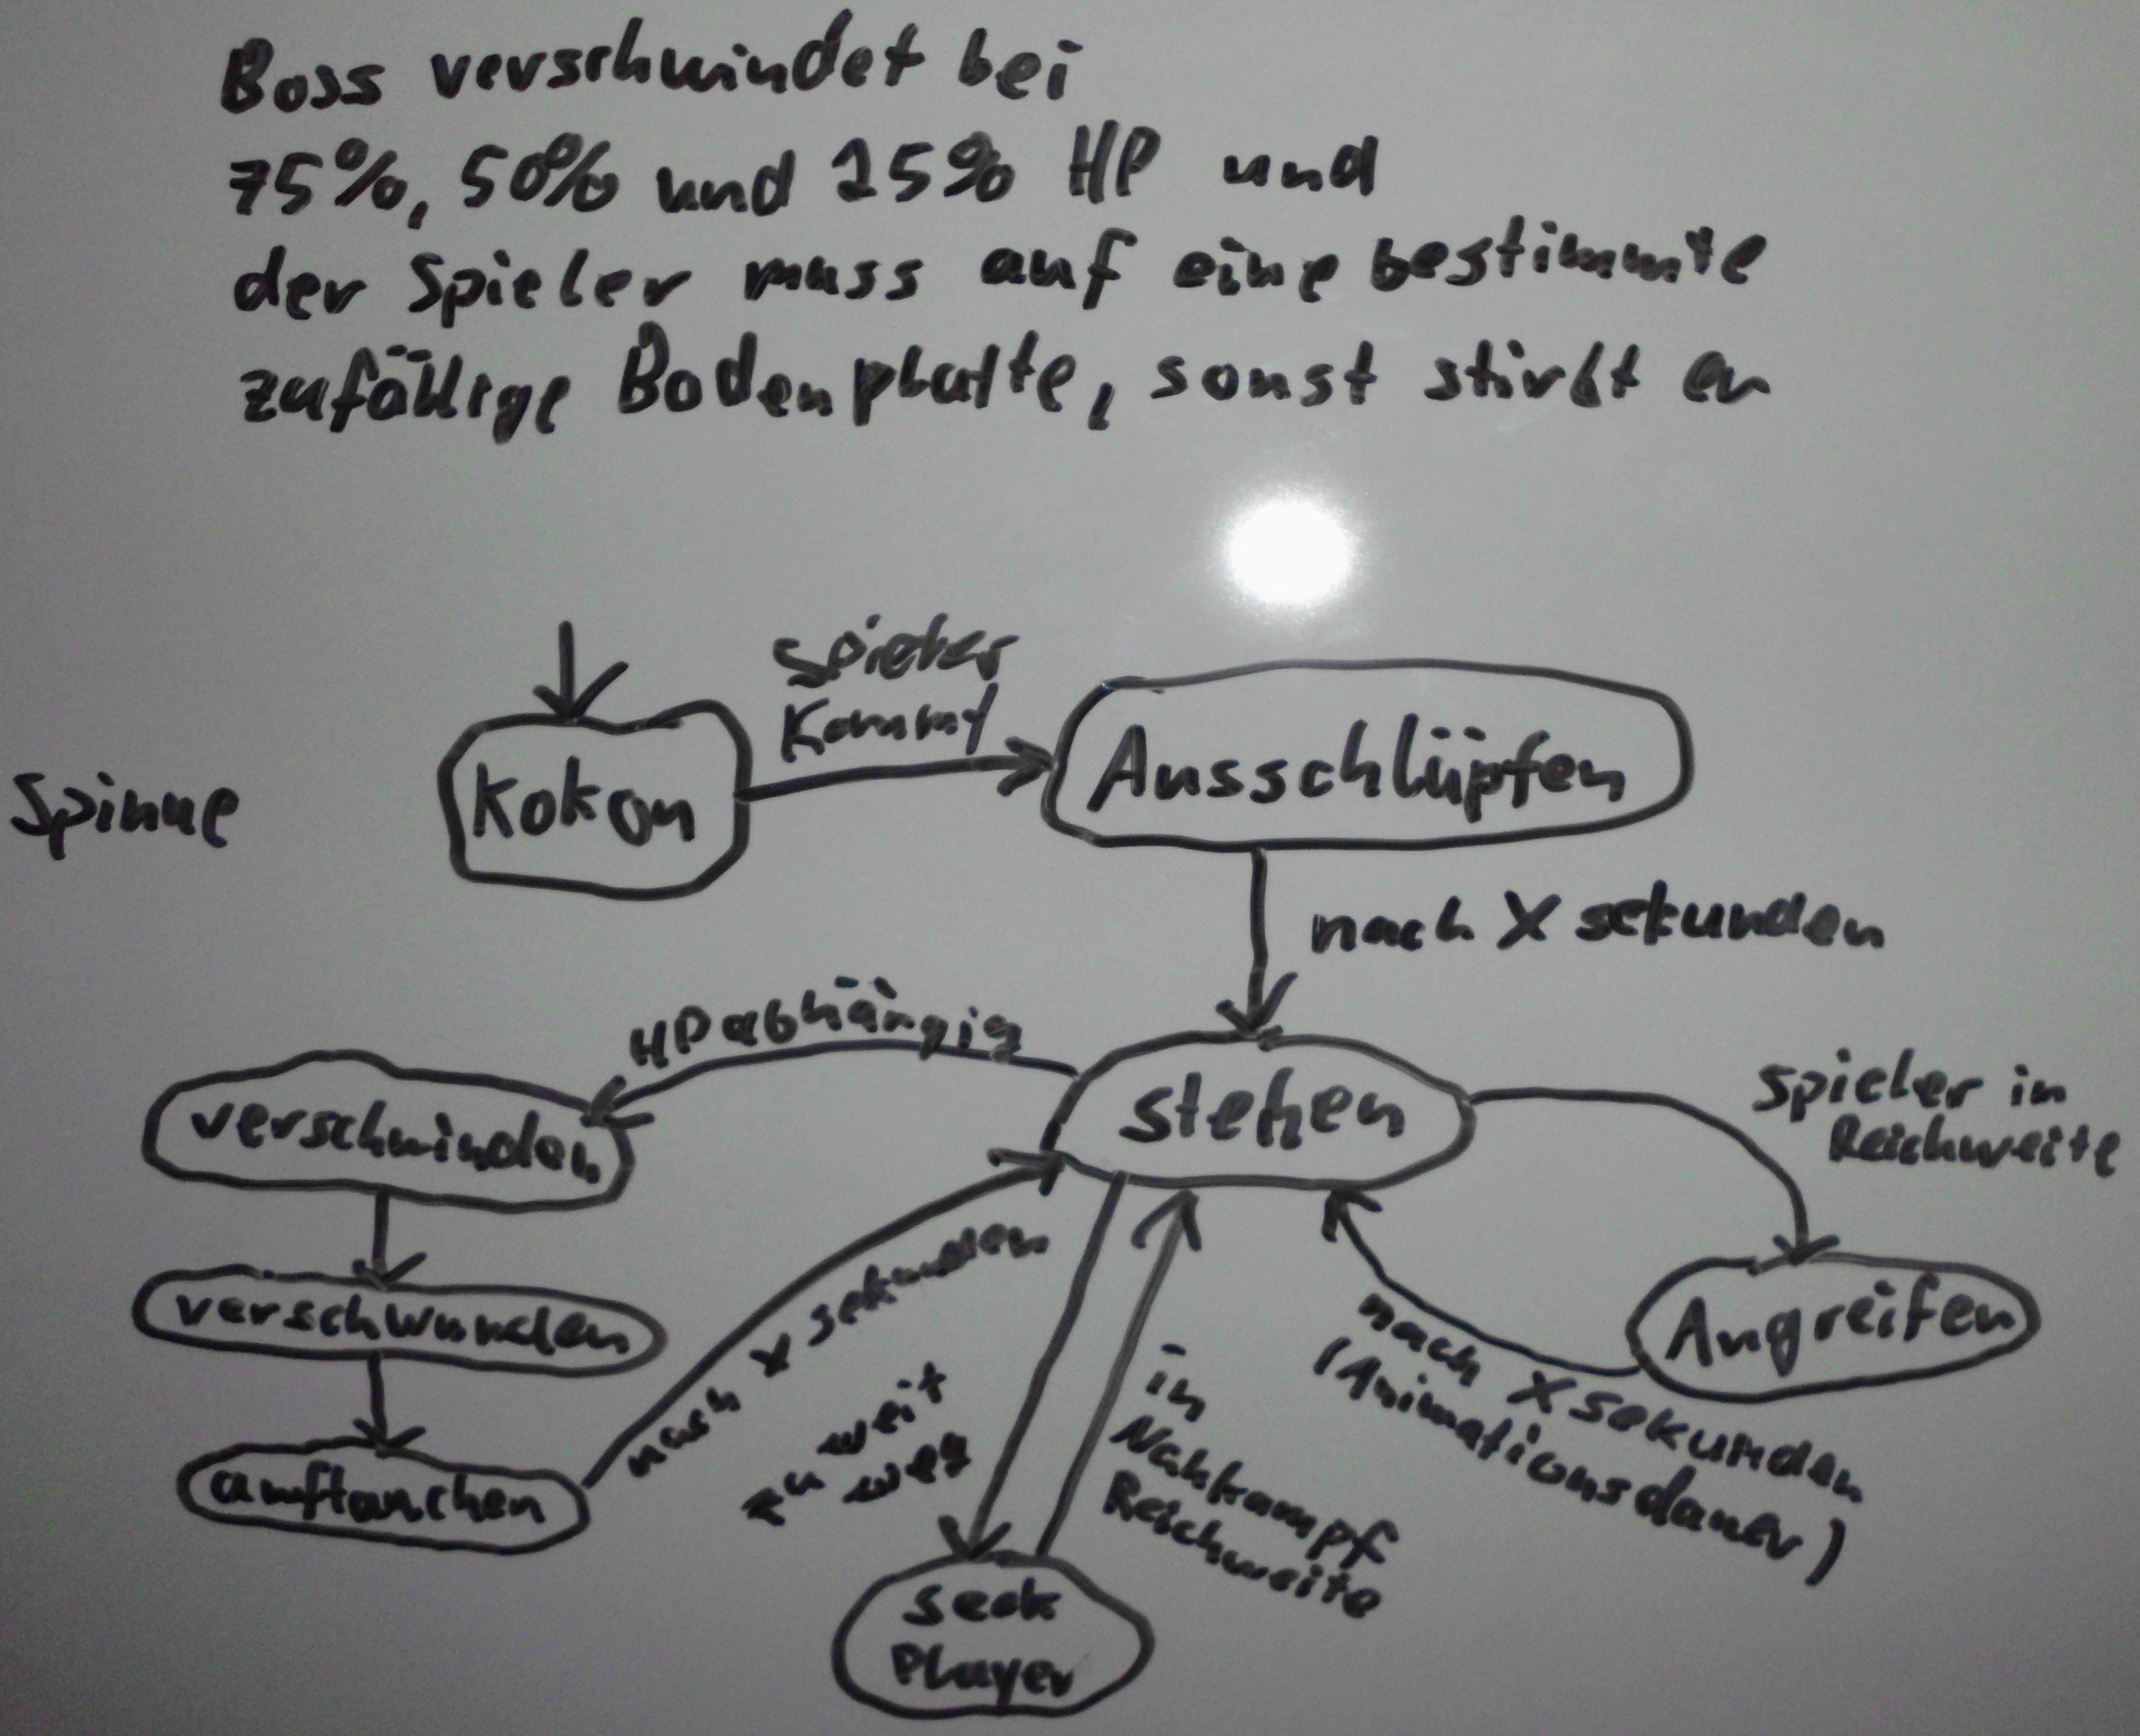 Boss verschwindet bei
75%, 50% und 25% HP und
der Spieler muss auf eine bestimmte
zufällige Bodenplatte, sonst stirbt er
Spieler
Kommt
Kokon
Ausschlüpfen
Spinne
nach X sekunden
HP abhängig
stehen
Spieler in
Reichweite
verschwinden
verschwunden
auftauchen
nach X sekunden
zu weit
weg
in
Nahkampf
Reichweite
nach X sekunden
(Animationsdauer)
Angreifen
seek
Player